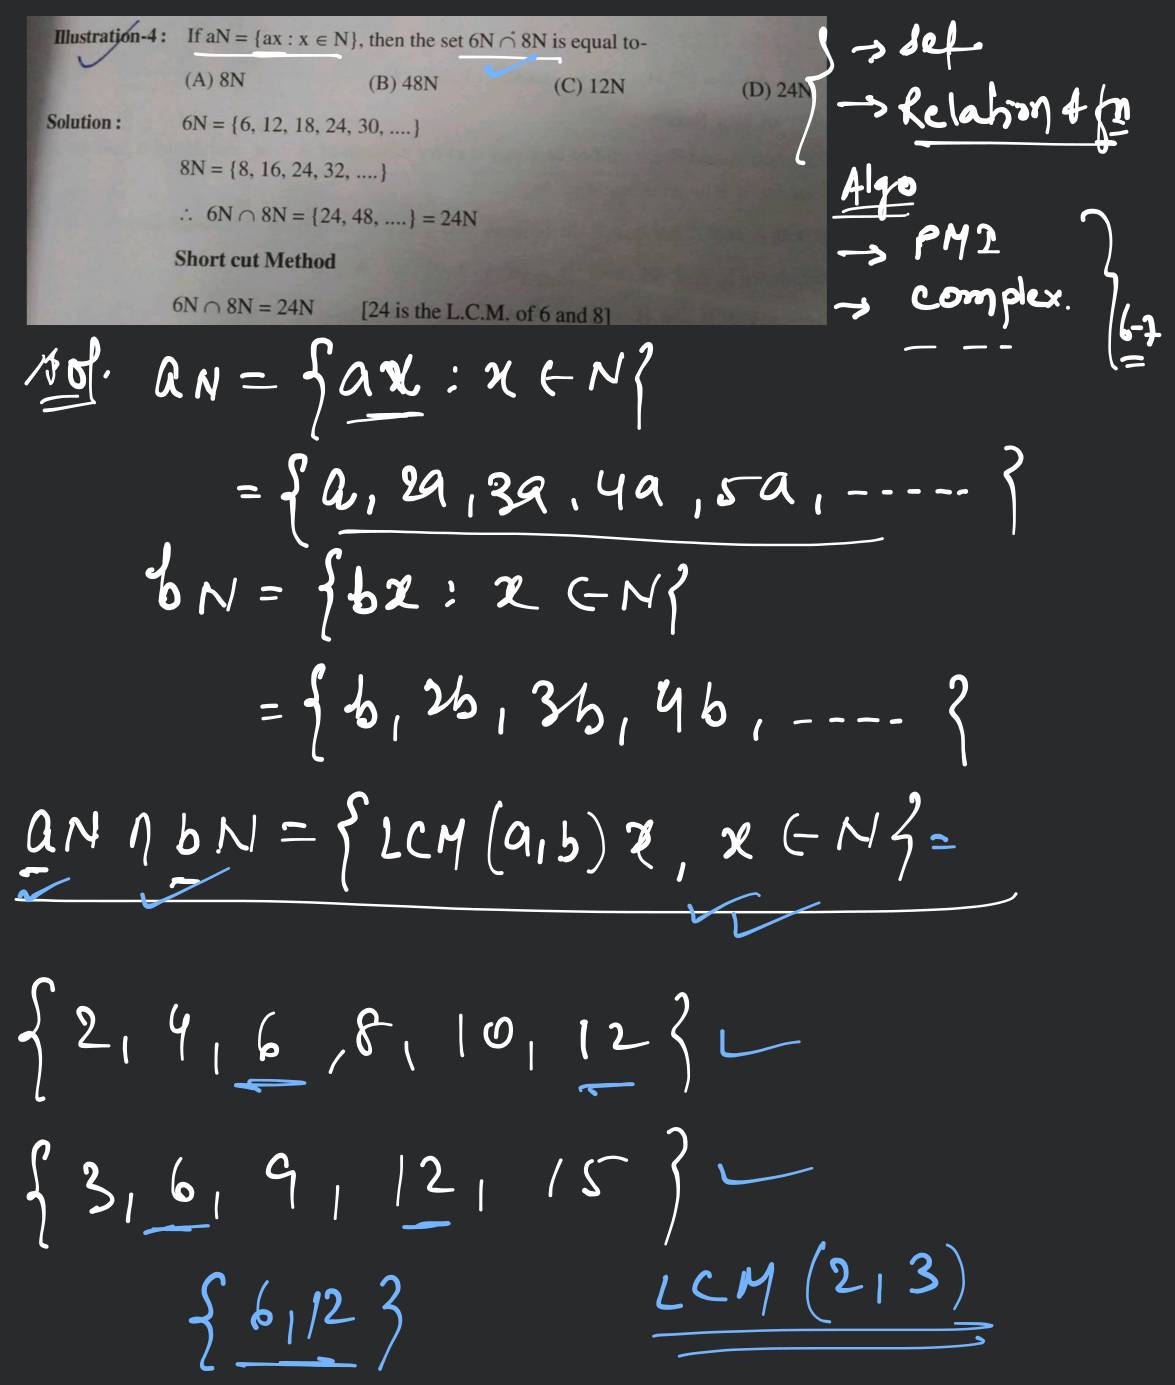 Illustration-4 : If aN = {ax : x ∈ N}, then the set 6N ∩ 8N is equal to-
(A) 8N (B) 48N (C) 12N (D) 24N
Solution : 6N = {6, 12, 18, 24, 30, ....}
8N = {8, 16, 24, 32, ....}
∴ 6N ∩ 8N = {24, 48, ....} = 24N
Short cut Method
6N ∩ 8N = 24N [24 is the L.C.M. of 6 and 8]
→ Set
→ Relation & fn
Algo
→ PMI
→ complex.
- - -
6-7
Sol. aN = {ax : x ∈ N}
= {a, 2a, 3a, 4a, 5a, ------}
bN = {bx : x ∈ N}
= {b, 2b, 3b, 4b, ---- }
aN ∩ bN = {LCM (a,b) x, x ∈ N} =
{2, 4, 6, 8, 10, 12}
{3, 6, 9, 12, 15}
{6, 12}
LCM (2, 3)